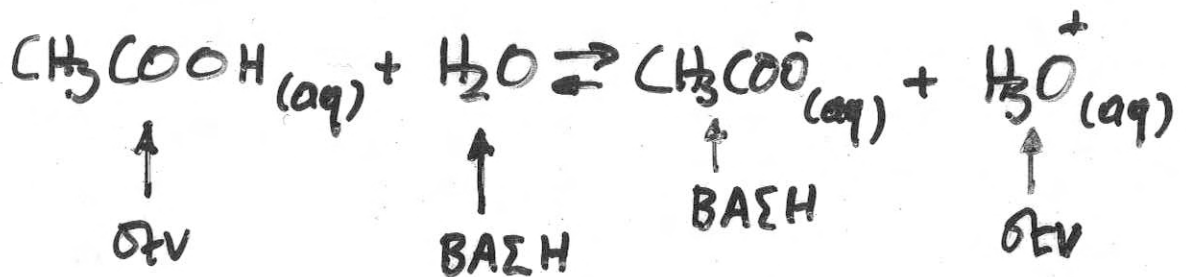 CH₃COOH(aq) + H₂O ⇌ CH₃COO⁻(aq) + H₃O⁺(aq)
οξύ ΒΑΣΗ ΒΑΣΗ οξύ